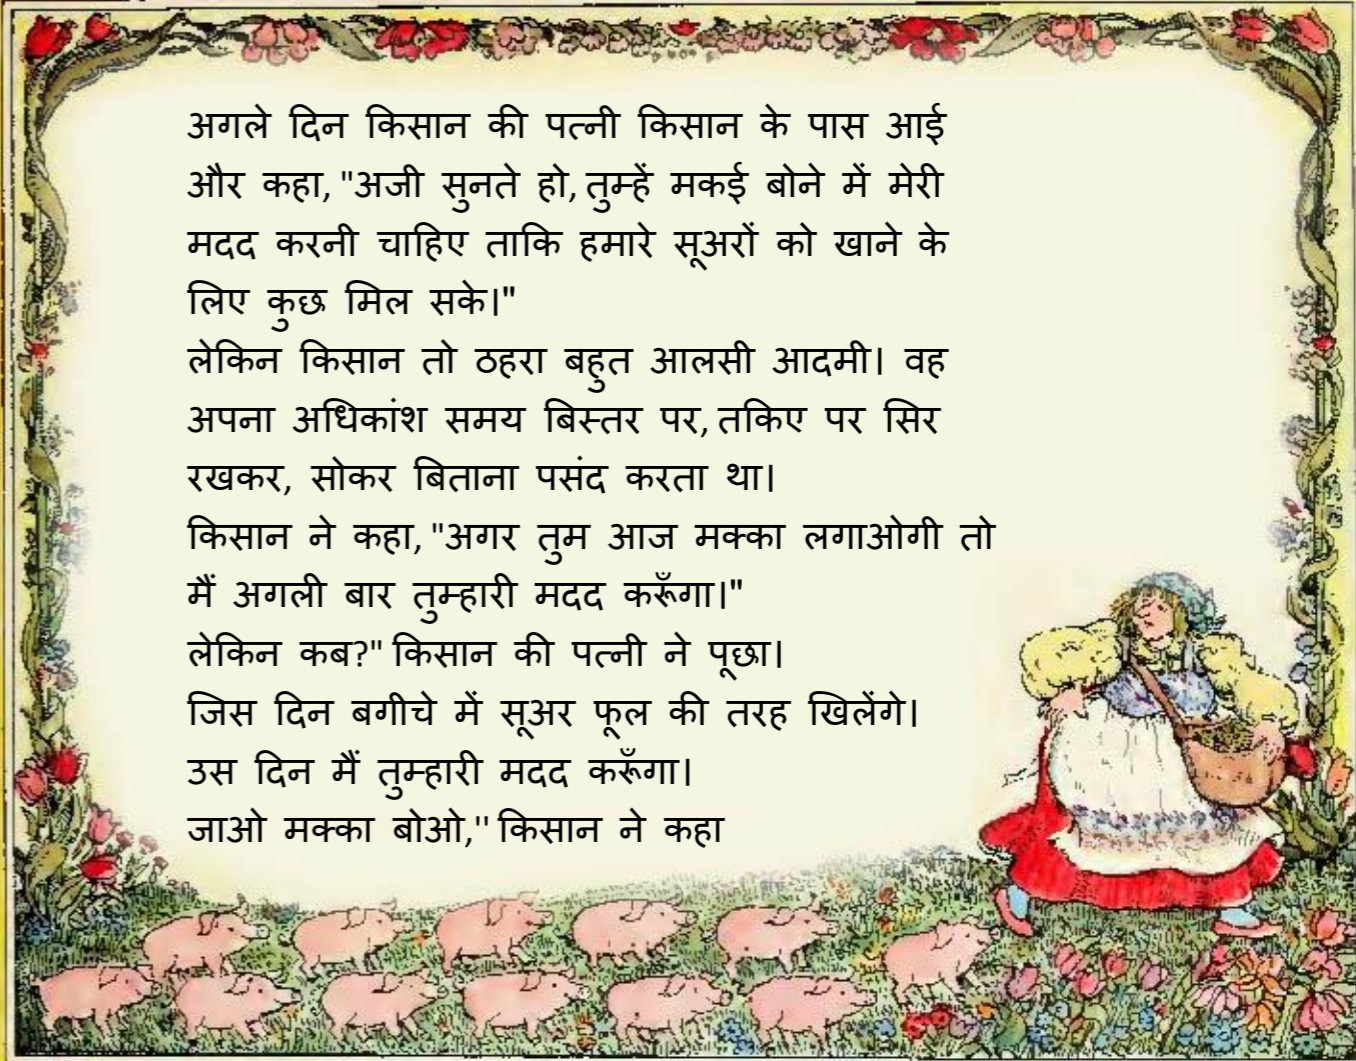 अगले दिन किसान की पत्नी किसान के पास आई
और कहा, "अजी सुनते हो, तुम्हें मकई बोने में मेरी
मदद करनी चाहिए ताकि हमारे सूअरों को खाने के
लिए कुछ मिल सके।"
लेकिन किसान तो ठहरा बहुत आलसी आदमी। वह
अपना अधिकांश समय बिस्तर पर, तकिए पर सिर
रखकर, सोकर बिताना पसंद करता था।
किसान ने कहा, "अगर तुम आज मक्का लगाओगी तो
मैं अगली बार तुम्हारी मदद करूँगा।"
लेकिन कब?" किसान की पत्नी ने पूछा।
जिस दिन बगीचे में सूअर फूल की तरह खिलेंगे।
उस दिन मैं तुम्हारी मदद करूँगा।
जाओ मक्का बोओ,'' किसान ने कहा